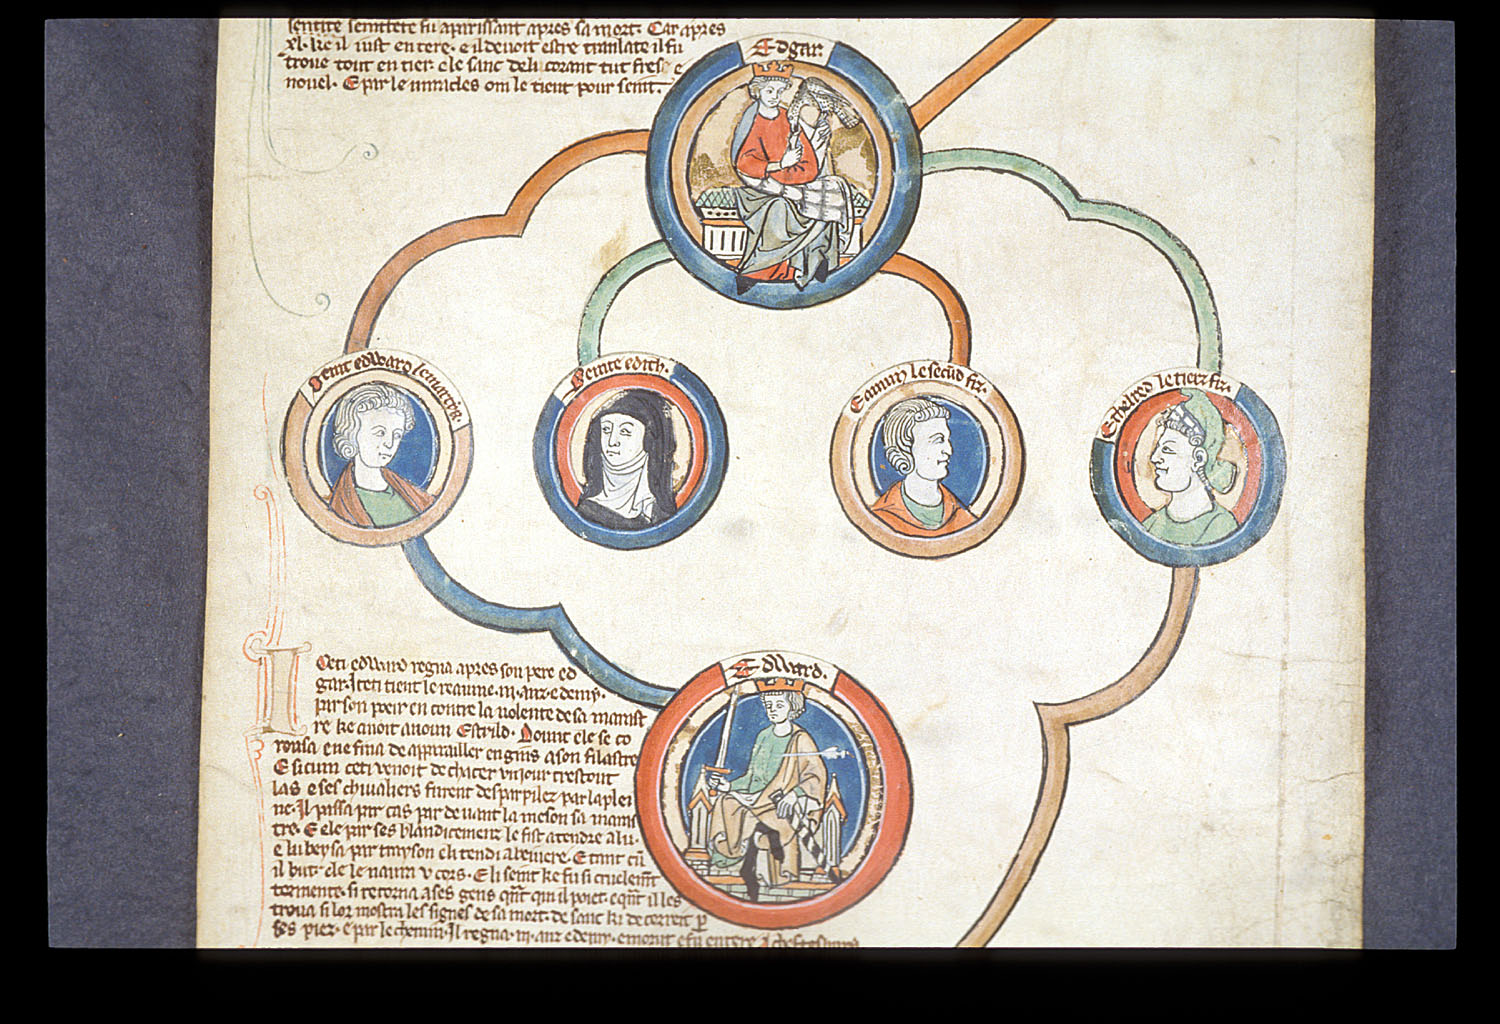 sentite fu apparissant apres sa mort. Car apres
xl. ke il iust en tere. e il devoit estre translate il fu
trove tout entier. e le sanc de li corant tut fres e
novel. E par le miracles om le tient pour seint.
Edgar.
Seint edward le martir.
Seinte edith.
Eamun le secund fiz.
Ethelred le tierz fiz.
Edward.
Ceti edward regna apres son pere ed
gar. Iceti tient le reaume .iii. anz e demy.
par son poeir en contre la volente de sa marast
re ke avoit a noun Estrild. Dount ele se co
rousa e ne fina de apparailler engins a son filastre
E si cum ceti venoit de chacer un jour trestout
las e ses chivaliers furent desparpilez par la plei
ne. Il passa par cas par devant la meson sa maras
tre. E ele par ses blandicemenz le fist atendre a lu.
e lu beysa par trayson e li tendi a beivere. E tant cū
il but. ele le naura v cors. E li seint ke fu si cruelemt
tormente. si retorna a ses gens qnt qu il poiet. e qnt il les
trova si lor mostra les signes de sa mort. de sanc ki de correit p
ses piez. e par le chemin. Il regna .iii. anz e demy. e morut e fu enterre